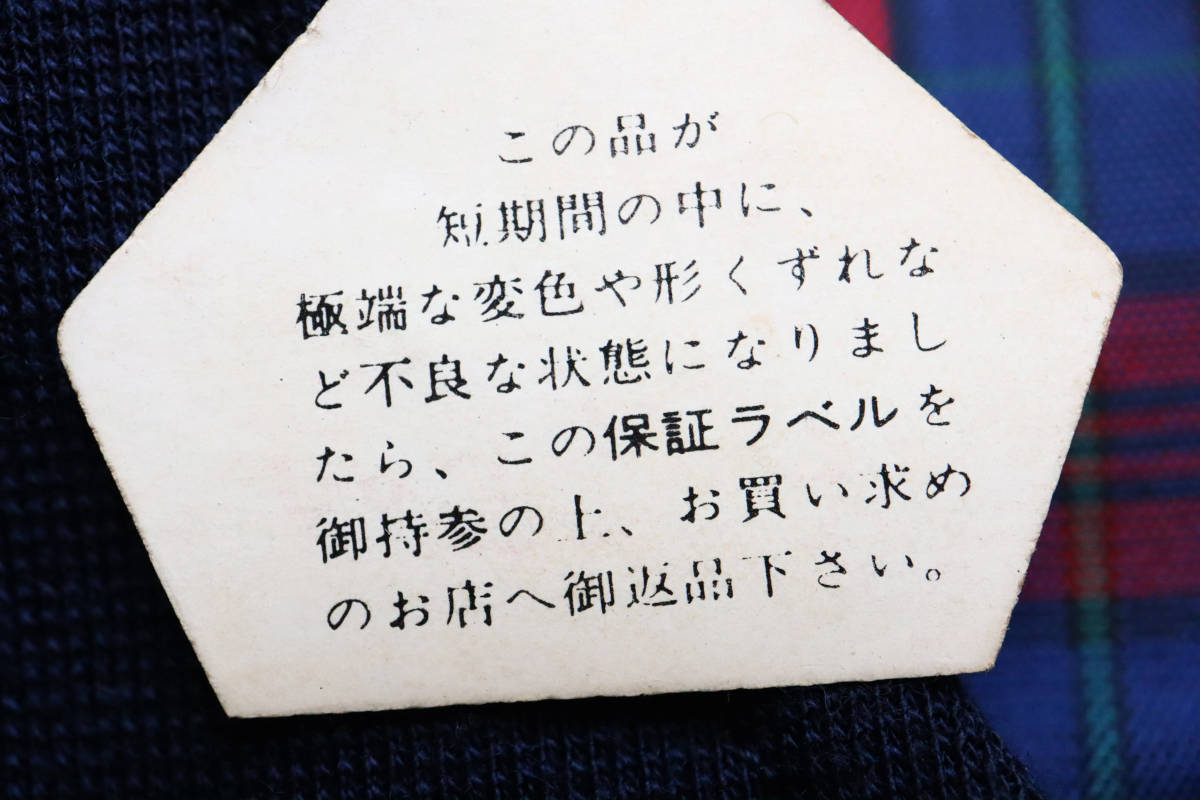 この品が
短期間の中に、
極端な変色や形くずれな
ど不良な状態になりまし
たら、この保証ラベルを
御持参の上、お買い求め
のお店へ御返品下さい。